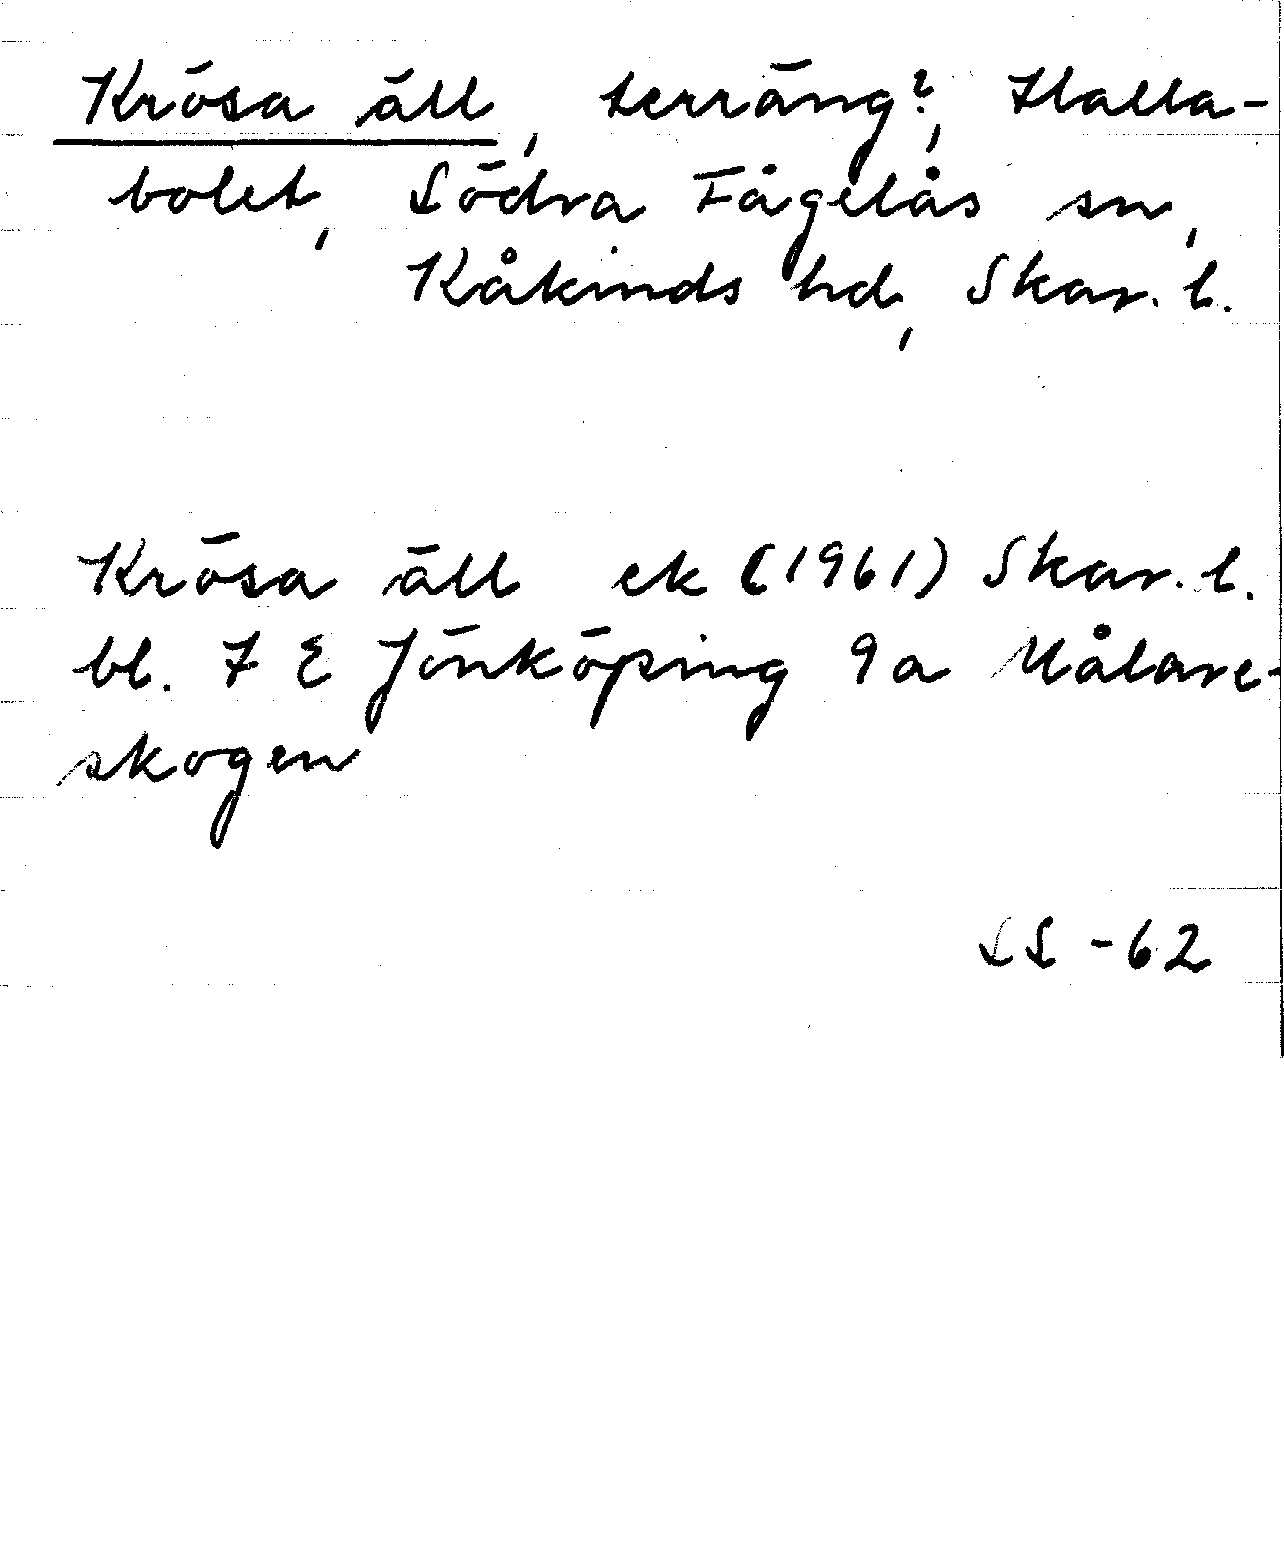 Krösa äll, terräng?, Halla-
bolet, Södra Fågelås sn,
Kåkinds hd, Skar. l.
Krösa äll ek (1961) Skar. l.
bl. 7 E Jönköping 9a Målare-
skogen
SS -62